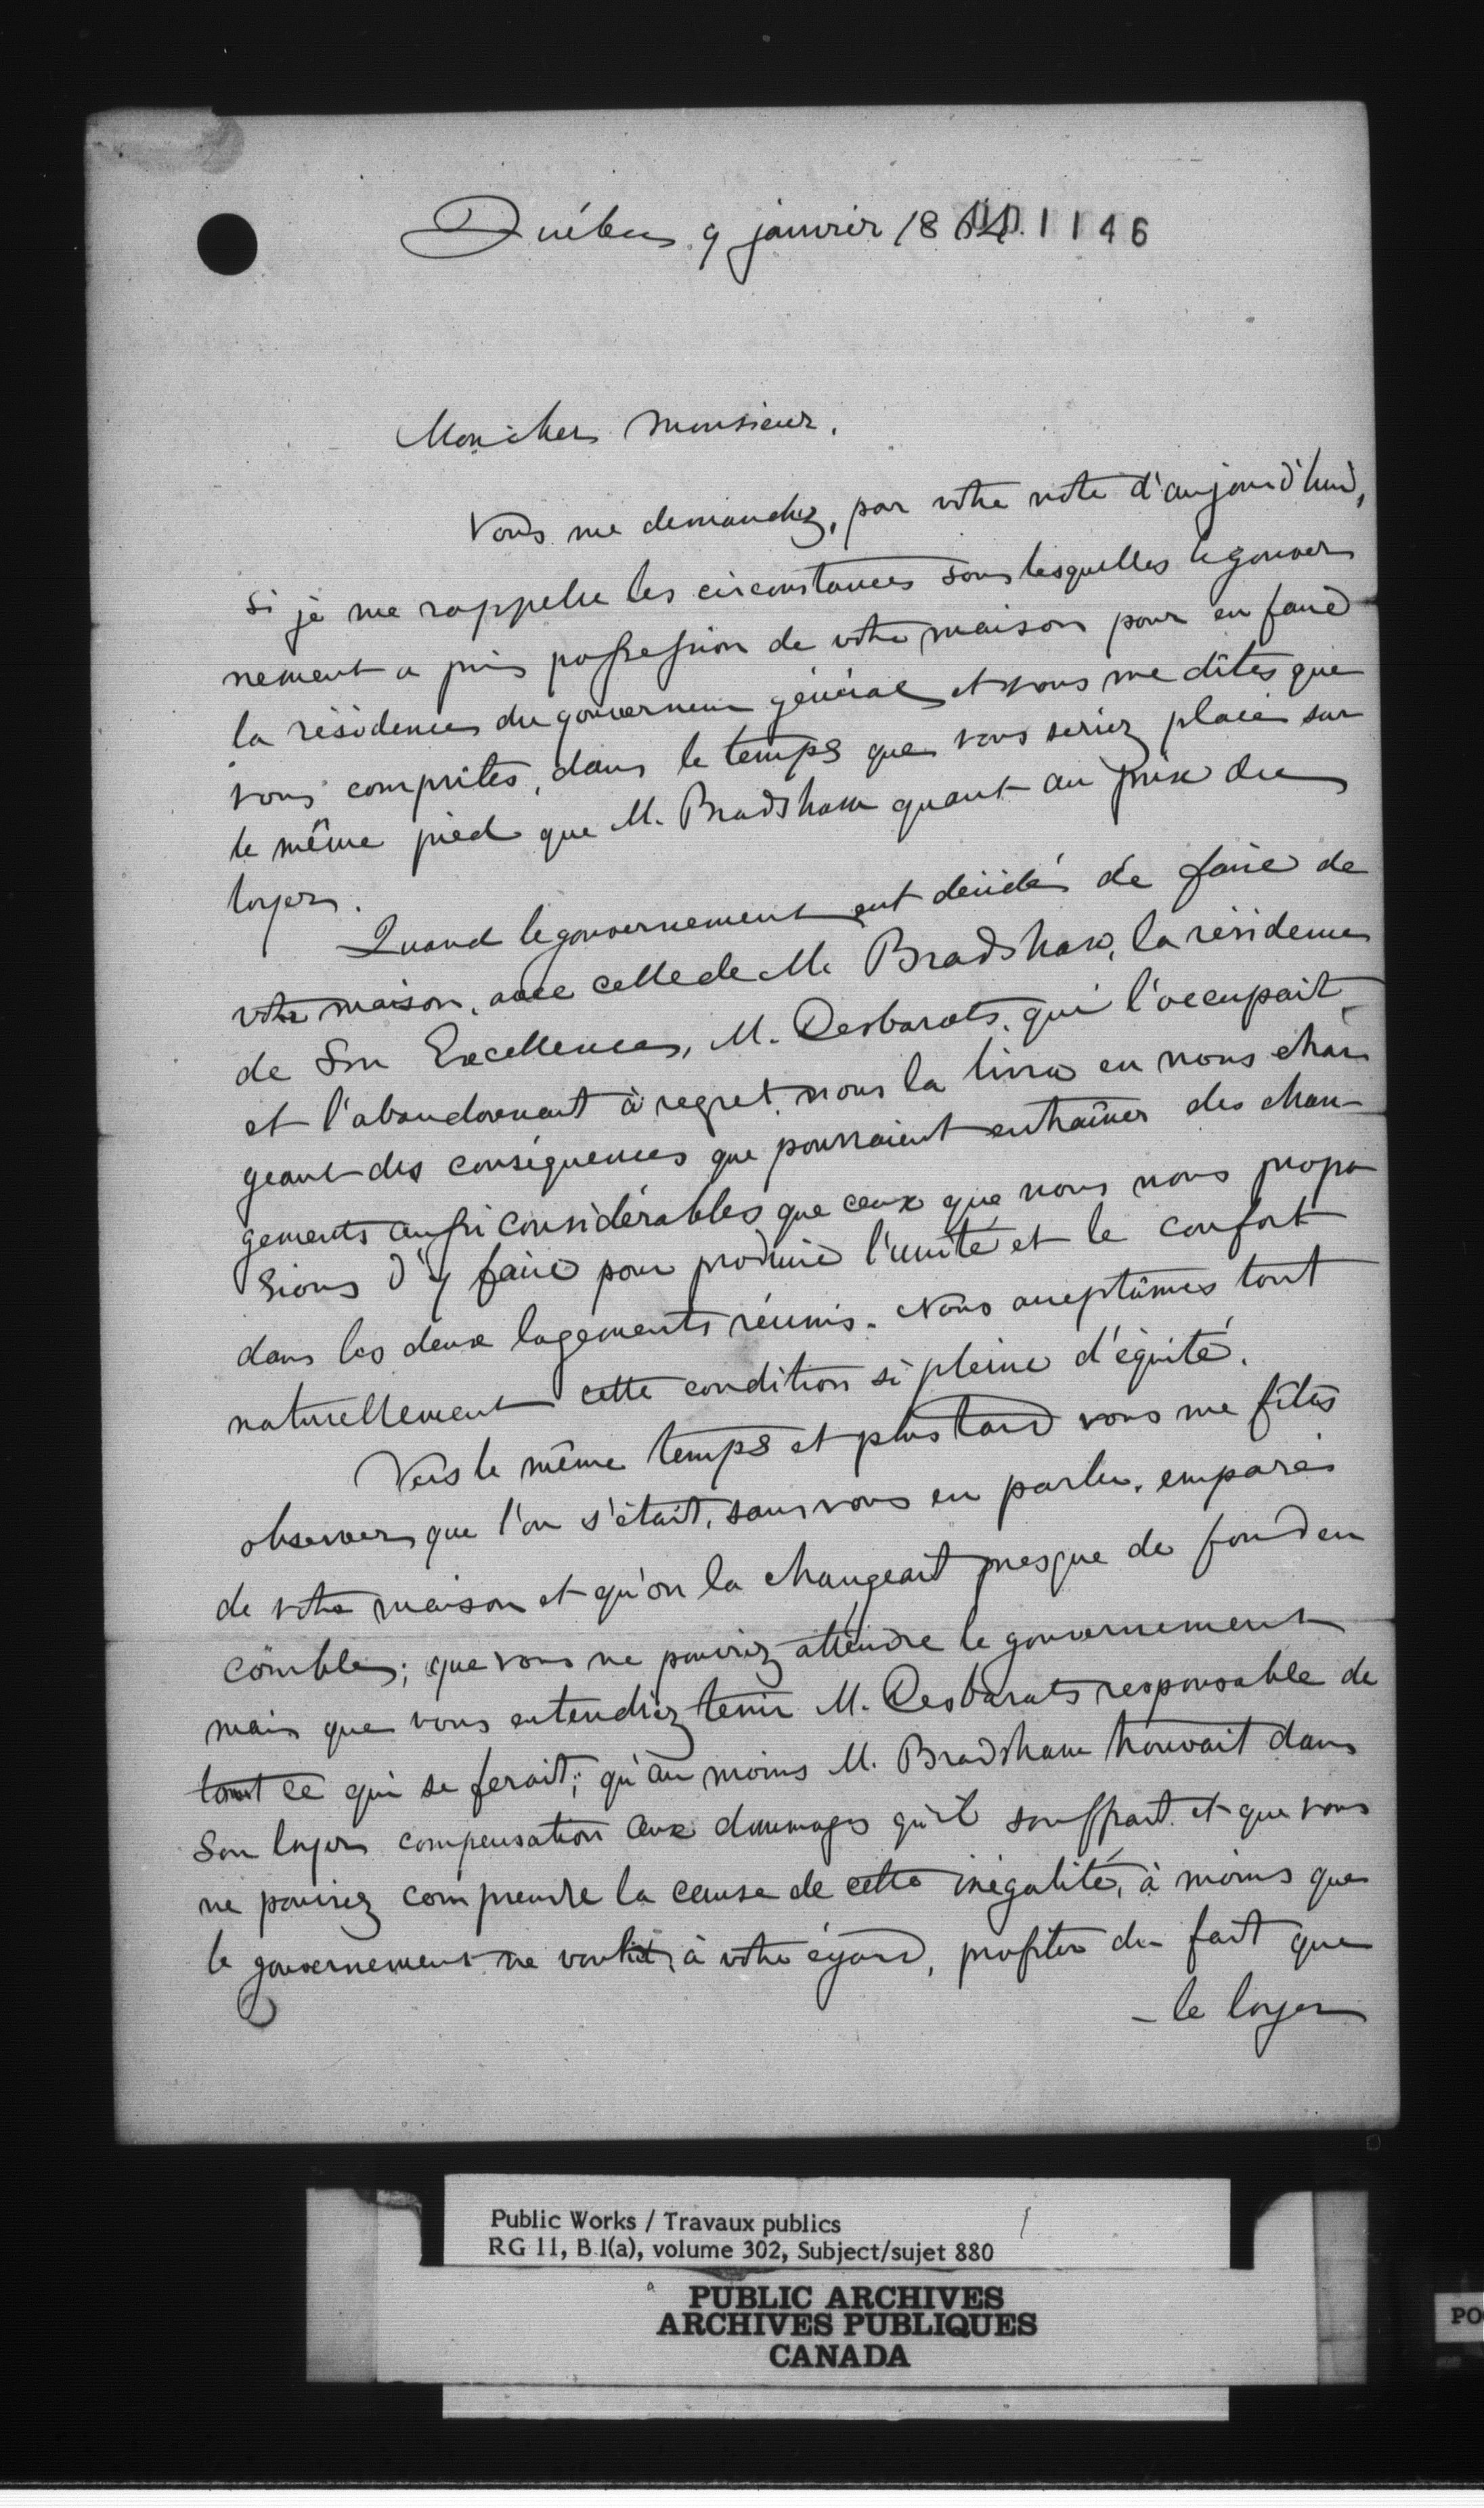 Québec 9 janvier 1864. 1146
Mon cher Monsieur,
Vous me demandez, par votre note d'aujourd'hui,
si je me rappelle les circonstances sous lesquelles le gouver
nement a pris possession de votre maison pour en faire
la résidence du gouverneur général et vous me dites que
vous comprîtes, dans le temps que vous seriez placé sur
le même pied que M. Bradshaw quant au prix du
loyer.
Quand le gouvernement eut décidé de faire de
votre maison, avec celle de M. Bradshaw, la résidence
de Son Excellence, M. Desbarats, qui l'occupait
et l'abandonnant à regret, nous la livra en nous char
geant des conséquences que pourraient entraîner des chan-
gements aussi considérables que ceux que nous nous propo
sions d'y faire pour produire l'unité et le confort
dans les deux logements réunis. Nous acceptâmes tout
naturellement cette condition si pleine d'équité.
Vers le même temps et plus tard vous me fîtes
observer que l'on s'était, sans vous en parler, emparé
de votre maison et qu'on la changeait presque de fond en
comble; que vous ne pouviez atteindre le gouvernement
mais que vous entendiez tenir M. Desbarats responsable de
tout ce qui se ferait; qu'au moins M. Bradshaw trouvait dans
son loyer compensation aux dommages qu'il souffrait et que vous
ne pouviez comprendre la cause de cette inégalité, à moins que
le gouvernement ne voulût, à votre égard, profiter du fait que
- le loyer
Public Works / Travaux publics
RG 11, B1(a), volume 302, Subject/sujet 880
PUBLIC ARCHIVES
ARCHIVES PUBLIQUES
CANADA
PO